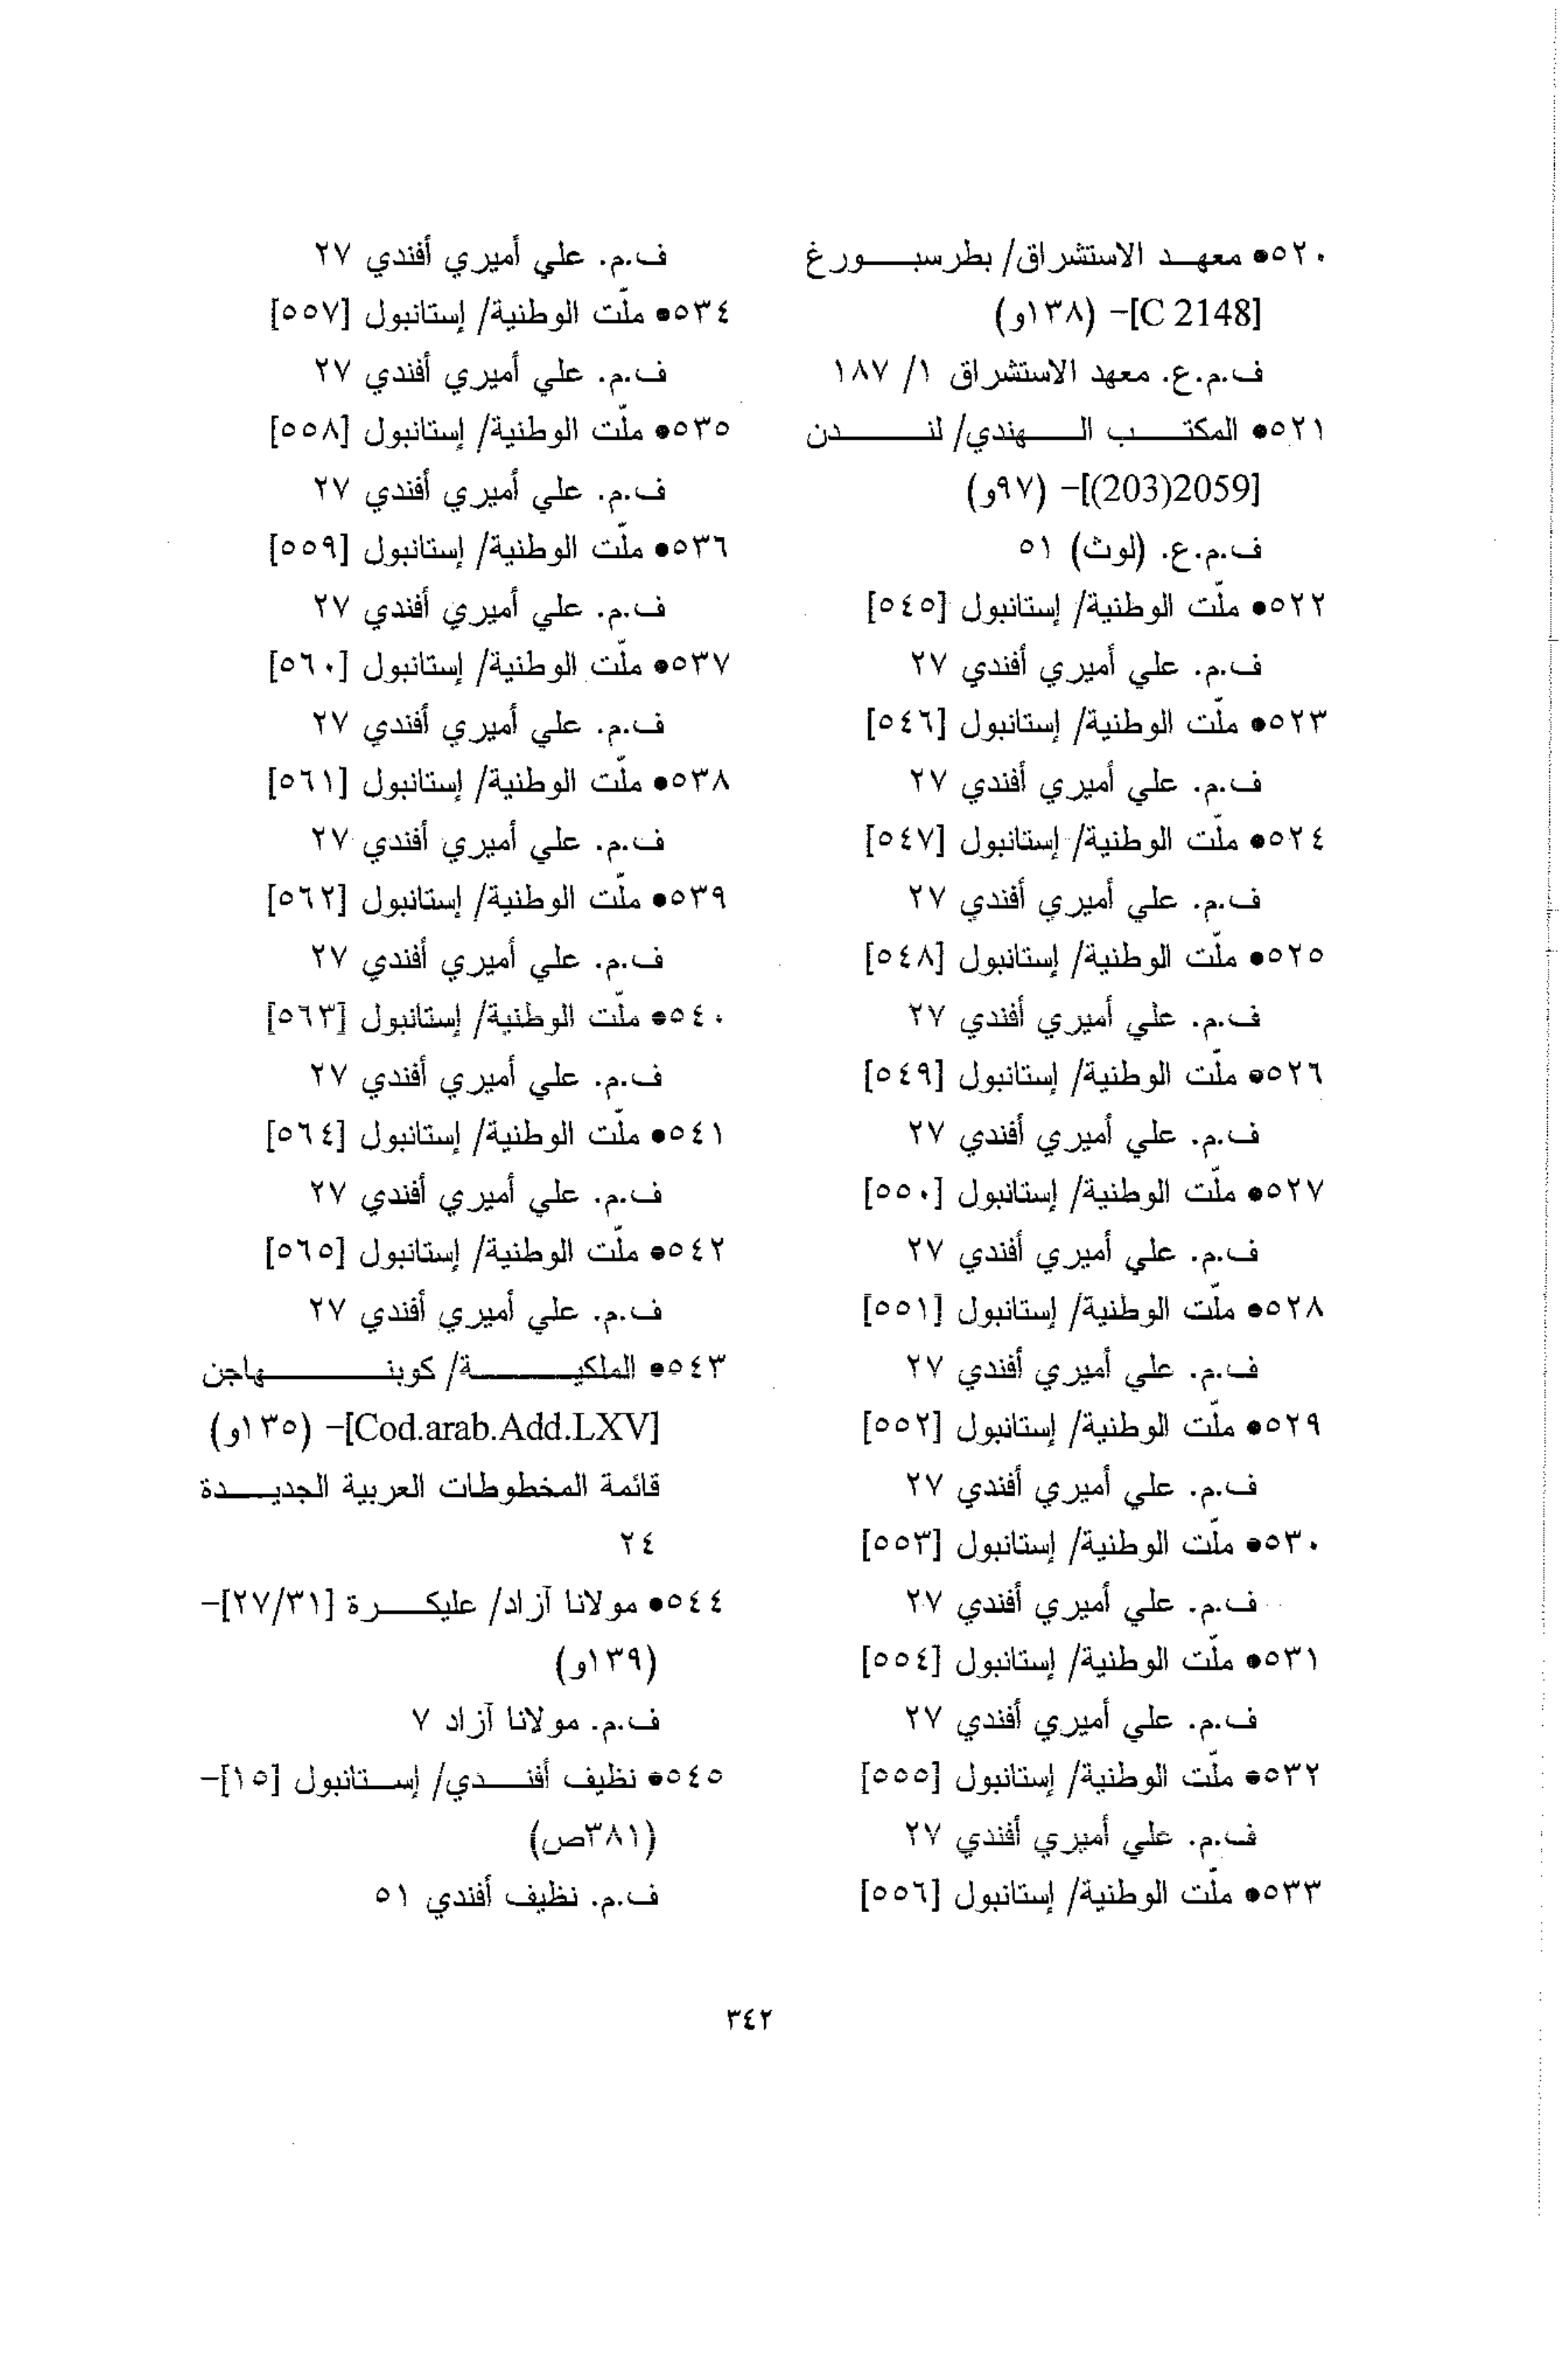 ٥٢٠● معهد الاستشراق/ بطرسبورغ
[C 2148]- (١٣٨و)
ف.م.ع. معهد الاستشراق ١/ ١٨٧
٥٢١● المكتب الهندي/ لندن
[2059(203)]- (٩٧و)
ف.م.ع. (لوث) ٥١
٥٢٢● ملّت الوطنية/ إستانبول [٥٤٥]
ف.م. علي أميري أفندي ٢٧
٥٢٣● ملّت الوطنية/ إستانبول [٥٤٦]
ف.م. علي أميري أفندي ٢٧
٥٢٤● ملّت الوطنية/ إستانبول [٥٤٧]
ف.م. علي أميري أفندي ٢٧
٥٢٥● ملّت الوطنية/ إستانبول [٥٤٨]
ف.م. علي أميري أفندي ٢٧
٥٢٦● ملّت الوطنية/ إستانبول [٥٤٩]
ف.م. علي أميري أفندي ٢٧
٥٢٧● ملّت الوطنية/ إستانبول [٥٥٠]
ف.م. علي أميري أفندي ٢٧
٥٢٨● ملّت الوطنية/ إستانبول [٥٥١]
ف.م. علي أميري أفندي ٢٧
٥٢٩● ملّت الوطنية/ إستانبول [٥٥٢]
ف.م. علي أميري أفندي ٢٧
٥٣٠● ملّت الوطنية/ إستانبول [٥٥٣]
ف.م. علي أميري أفندي ٢٧
٥٣١● ملّت الوطنية/ إستانبول [٥٥٤]
ف.م. علي أميري أفندي ٢٧
٥٣٢● ملّت الوطنية/ إستانبول [٥٥٥]
ف.م. علي أميري أفندي ٢٧
٥٣٣● ملّت الوطنية/ إستانبول [٥٥٦]
ف.م. علي أميري أفندي ٢٧
٥٣٤● ملّت الوطنية/ إستانبول [٥٥٧]
ف.م. علي أميري أفندي ٢٧
٥٣٥● ملّت الوطنية/ إستانبول [٥٥٨]
ف.م. علي أميري أفندي ٢٧
٥٣٦● ملّت الوطنية/ إستانبول [٥٥٩]
ف.م. علي أميري أفندي ٢٧
٥٣٧● ملّت الوطنية/ إستانبول [٥٦٠]
ف.م. علي أميري أفندي ٢٧
٥٣٨● ملّت الوطنية/ إستانبول [٥٦١]
ف.م. علي أميري أفندي ٢٧
٥٣٩● ملّت الوطنية/ إستانبول [٥٦٢]
ف.م. علي أميري أفندي ٢٧
٥٤٠● ملّت الوطنية/ إستانبول [٥٦٣]
ف.م. علي أميري أفندي ٢٧
٥٤١● ملّت الوطنية/ إستانبول [٥٦٤]
ف.م. علي أميري أفندي ٢٧
٥٤٢● ملّت الوطنية/ إستانبول [٥٦٥]
ف.م. علي أميري أفندي ٢٧
٥٤٣● الملكية/ كوبنهاجن
[Cod.arab.Add.LXV]- (١٣٥و)
قائمة المخطوطات العربية الجديدة
٢٤
٥٤٤● مولانا آزاد/ عليكرة [٢٧/٣١]-
(١٣٩و)
ف.م. مولانا آزاد ٧
٥٤٥● نظيف أفندي/ إستانبول [١٥]-
(٣٨١ص)
ف.م. نظيف أفندي ٥١
٣٤٢